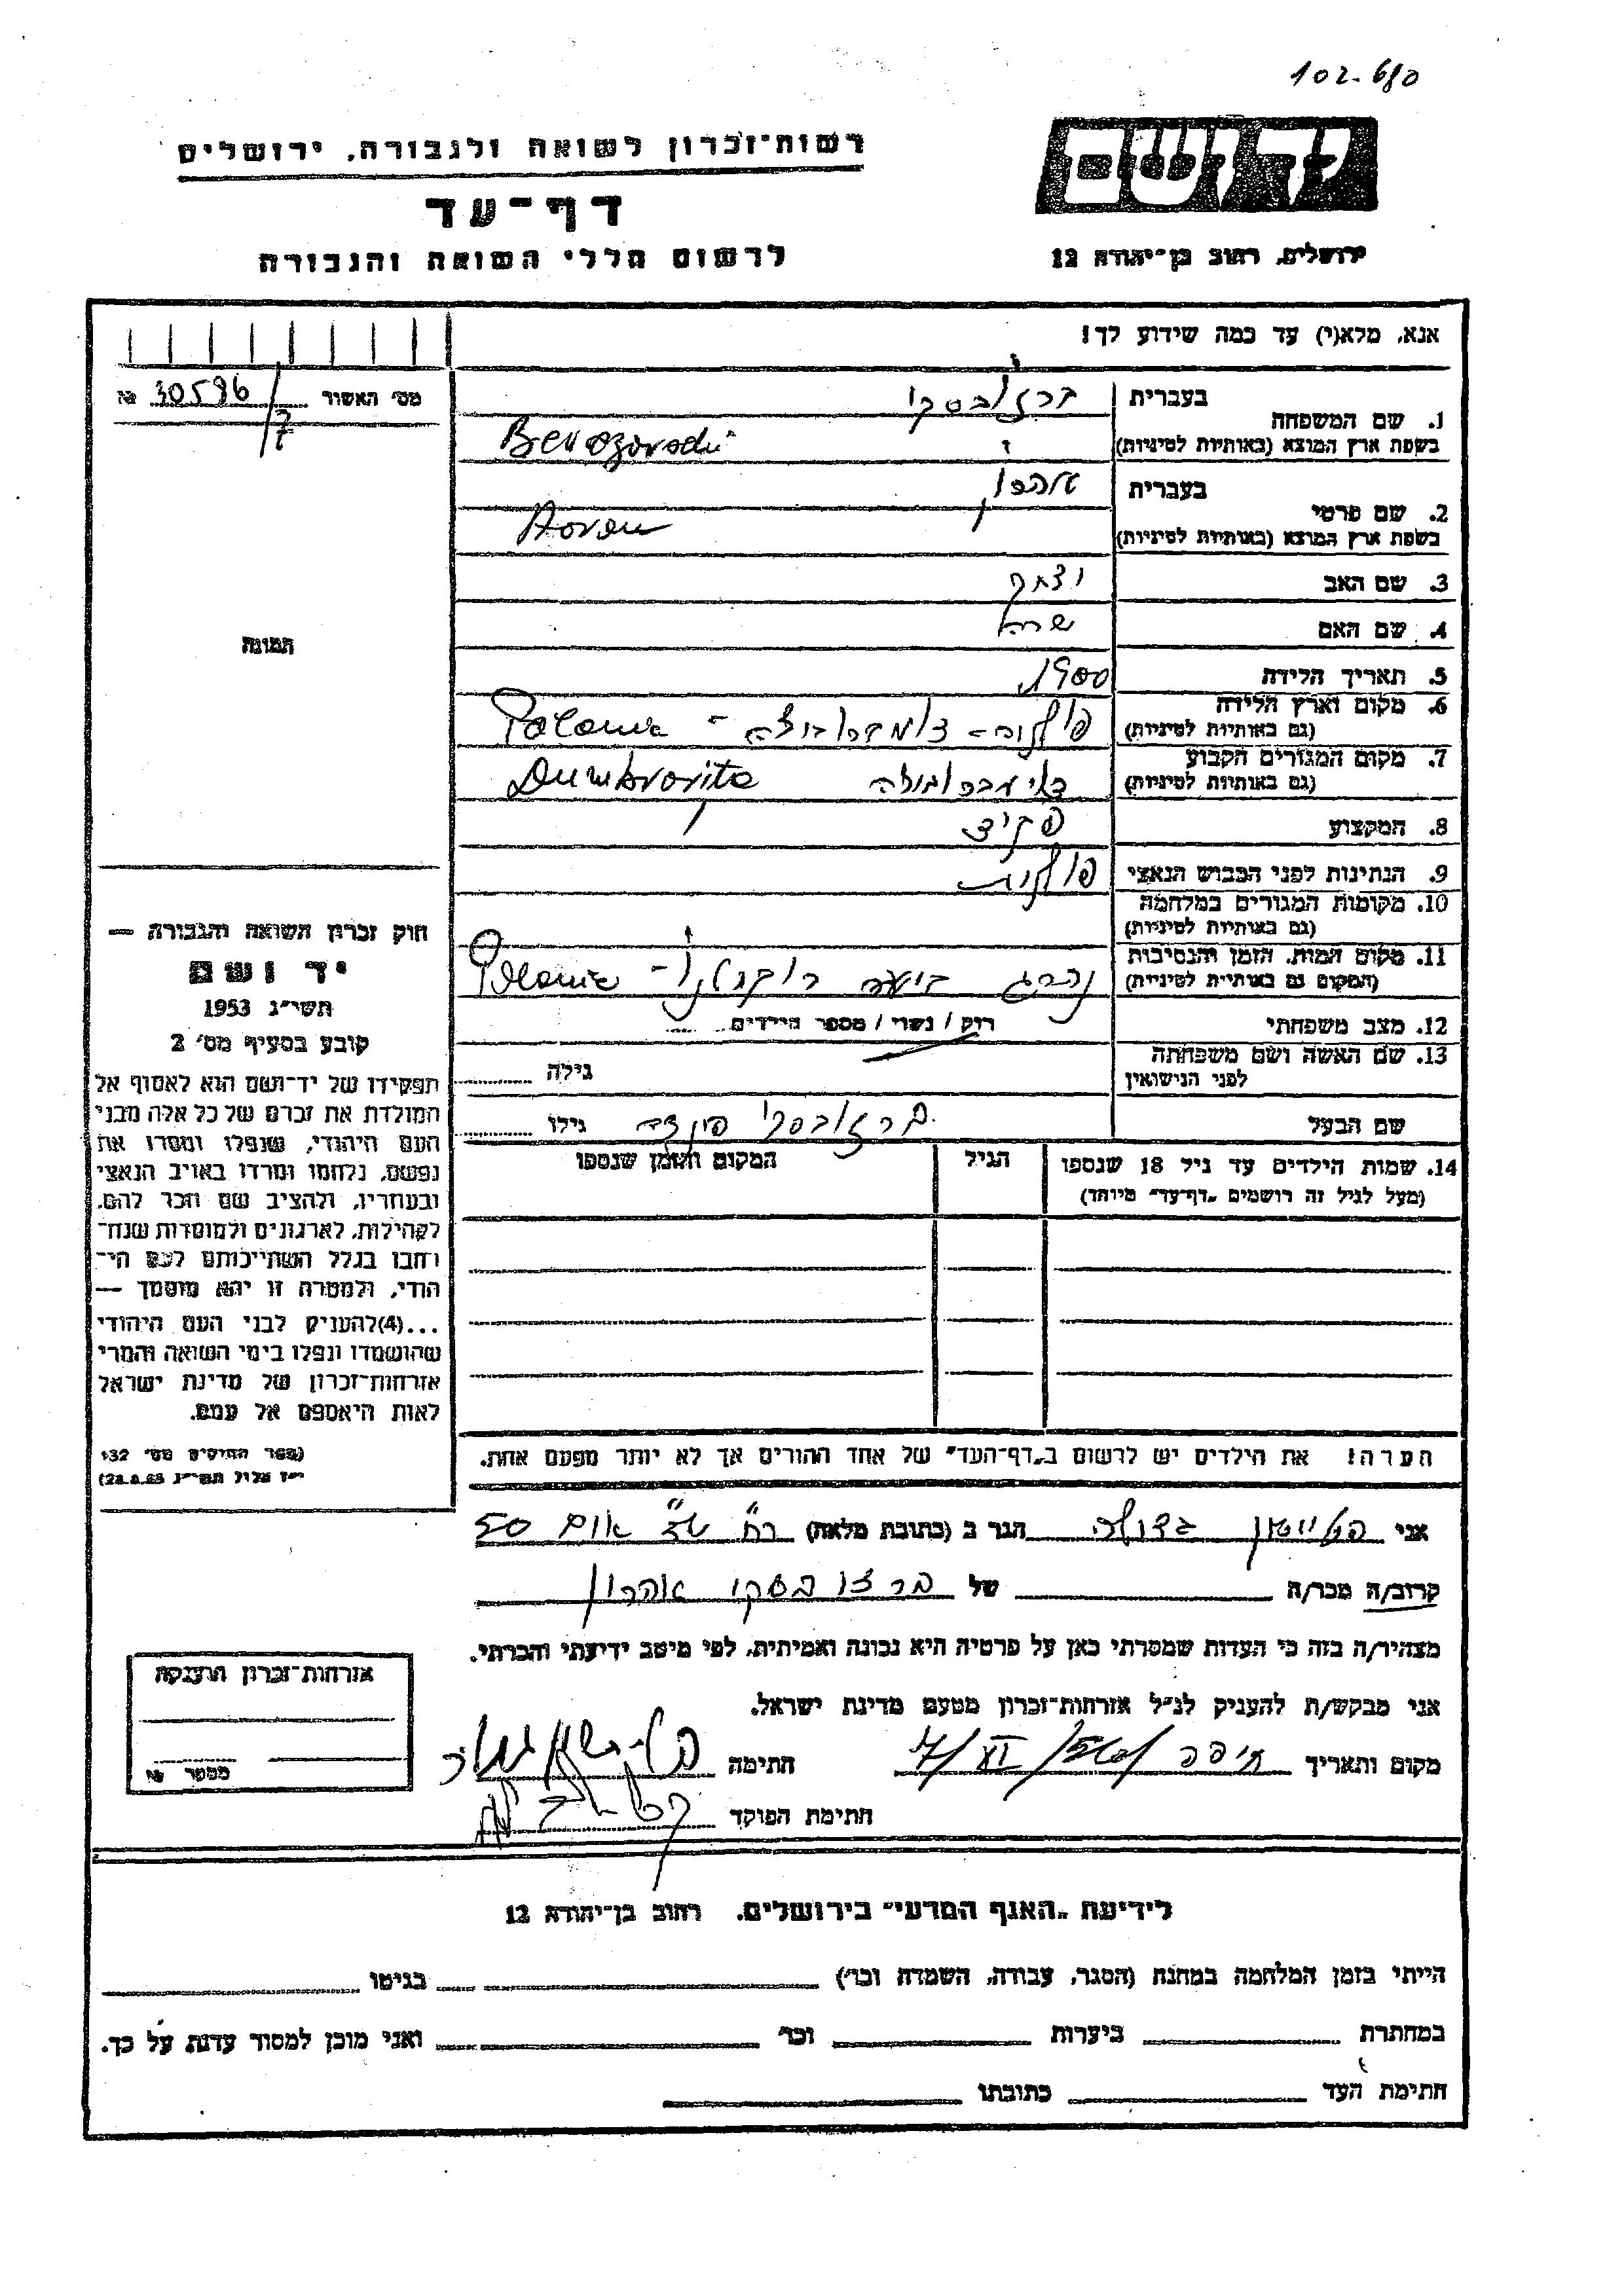 102-680
רשות־זכרון לשואה ולגבורה, ירושלים
יד ושם
דף־עד
לרשום חללי השואה והגבורה
ירושלים, רחוב בן־יהודה 12
אנא, מלא(י) עד כמה שידוע לך!
מס׳ האשור 30596/7 №
1. שם המשפחה
בעברית ברזובסקי
בשפת ארץ המוצא (באותיות לטיניות)
2. שם פרטי
בעברית אהרון
בשפת ארץ המוצא (באותיות לטיניות)
3. שם האב יצחק
4. שם האם שרה
5. תאריך הלידה 1900
6. מקום וארץ הלידה
(גם באותיות לטיניות) Polonia
7. מקום המגורים הקבוע
(גם באותיות לטיניות) Dumbrovita
8. המקצוע פקיד
9. הנתינות לפני הכבוש הנאצי פולנית
10. מקומות המגורים במלחמה
(גם באותיות לטיניות)
11. מקום המות, הזמן והנסיבות
(המקום גם באותיות לטיניות) נהרג ביער Polonia
12. מצב משפחתי רוק / נשוי / מספר הילדים
13. שם האשה ושם משפחתה
לפני הנישואין גילה
שם הבעל ברזובסקי גילו
14. שמות הילדים עד גיל 18 שנספו הגיל המקום והזמן שנספו
(מעל לגיל זה רושמים „דף־עד״ מיוחד)
תמונה
חוק זכרון השואה והגבורה —
יד ושם
תשי״ג 1953
קובע בסעיף מס׳ 2
תפקידו של יד־ושם הוא לאסוף אל
המולדת את זכרם של כל אלה מבני
העם היהודי, שנפלו ומסרו את
נפשם, נלחמו ומרדו באויב הנאצי
ובעוזריו, ולהציב שם וזכר להם,
לקהילות, לארגונים ולמוסדות שנח־
רבו בגלל השתייכותם לעם הי־
הודי, ולמטרה זו יהא מוסמך —
...(4)להעניק לבני העם היהודי
שהושמדו ונפלו בימי השואה והמרי
אזרחות־זכרון של מדינת ישראל
לאות היאספם אל עמם.
(ספר החוקים מס׳ 132
י״ז אלול תשי״ג 28.8.53)
הערה! את הילדים יש לרשום ב„דף־העד״ של אחד ההורים אך לא יותר מפעם אחת.
אני גדולה הגר ב (כתובת מלאה) רח׳ 50
קרוב/ה מכר/ה של ברזובסקי אהרון
מצהיר/ה בזה כי העדות שמסרתי כאן על פרטיה היא נכונה ואמיתית, לפי מיטב ידיעתי והכרתי.
אני מבקש/ת להעניק לנ״ל אזרחות־זכרון מטעם מדינת ישראל.
מקום ותאריך חיפה חתימה
חתימת הפוקד
אזרחות־זכרון הוענקה
מספר №
לידיעת „האגף המדעי״ בירושלים, רחוב בן־יהודה 12
הייתי בזמן המלחמה במחנה (הסגר, עבודה, השמדה וכו׳) בגיטו
במחתרת ביערות וכו׳ ואני מוכן למסור עדות על כך.
חתימת העד כתובתו